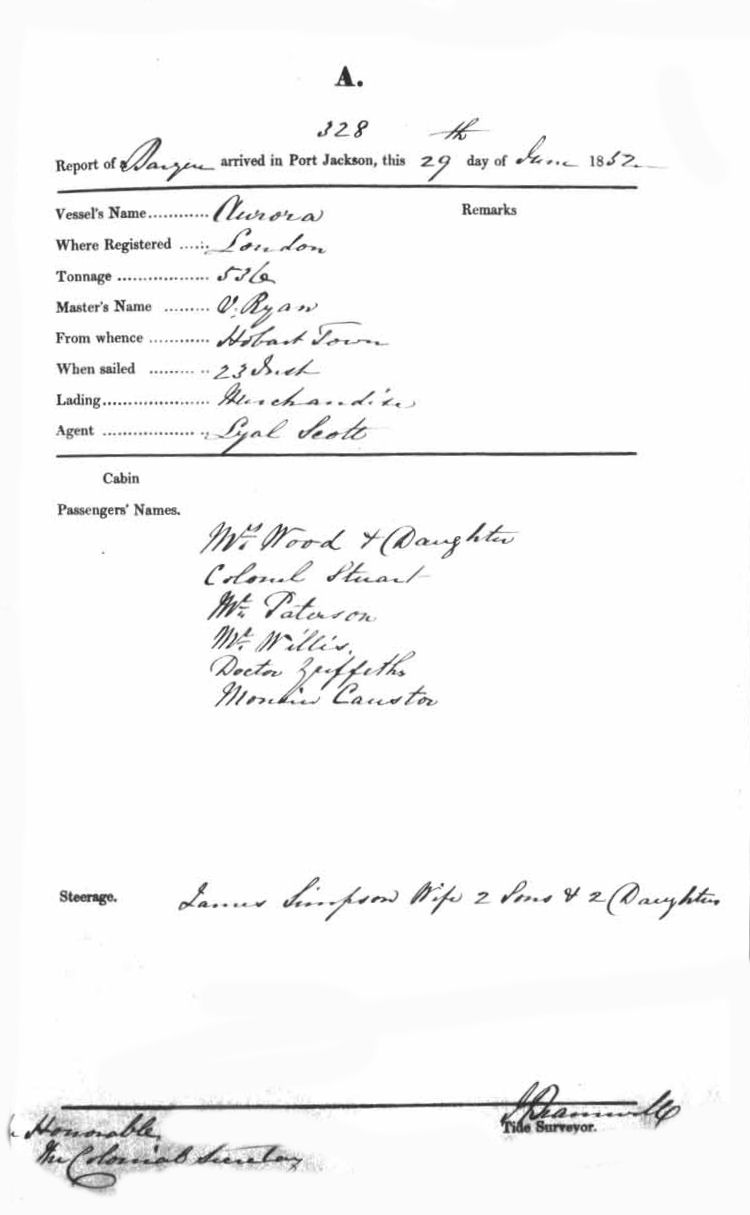 A.
328
Report of a Barque arrived in Port Jackson, this 29th day of June 1852
Vessel's Name............ Aurora Remarks
Where Registered ...... London
Tonnage .................. 536
Master's Name ......... V. Ryan
From whence ............ Hobart Town
When sailed ........... 23 Inst
Lading..................... Merchandise
Agent .................... Lyal Scott
Cabin
Passengers' Names.
Mrs. Wood & Daughter
Colonel Stuart
Mr. Paterson
Mr. Willis.
Doctor Griffiths
Monsieur Caustor
Steerage. James Simpson Wife 2 Sons & 2 Daughters
Tide Surveyor.
Honorable
The Colonial Secretary